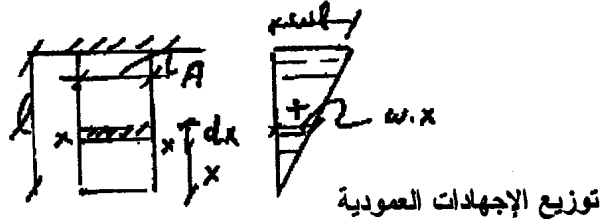 A
l
x x
dx
x
+
w.x
توزيع الإجهادات العمودية